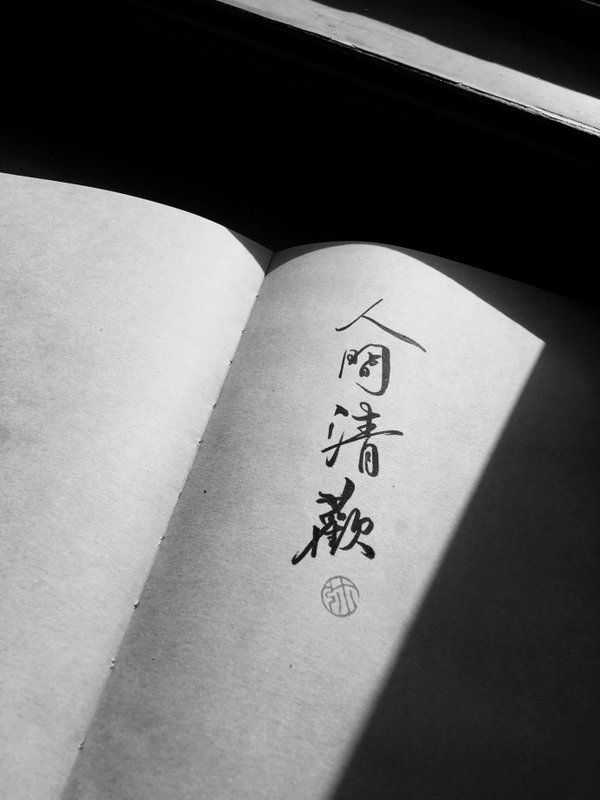 人間清歡